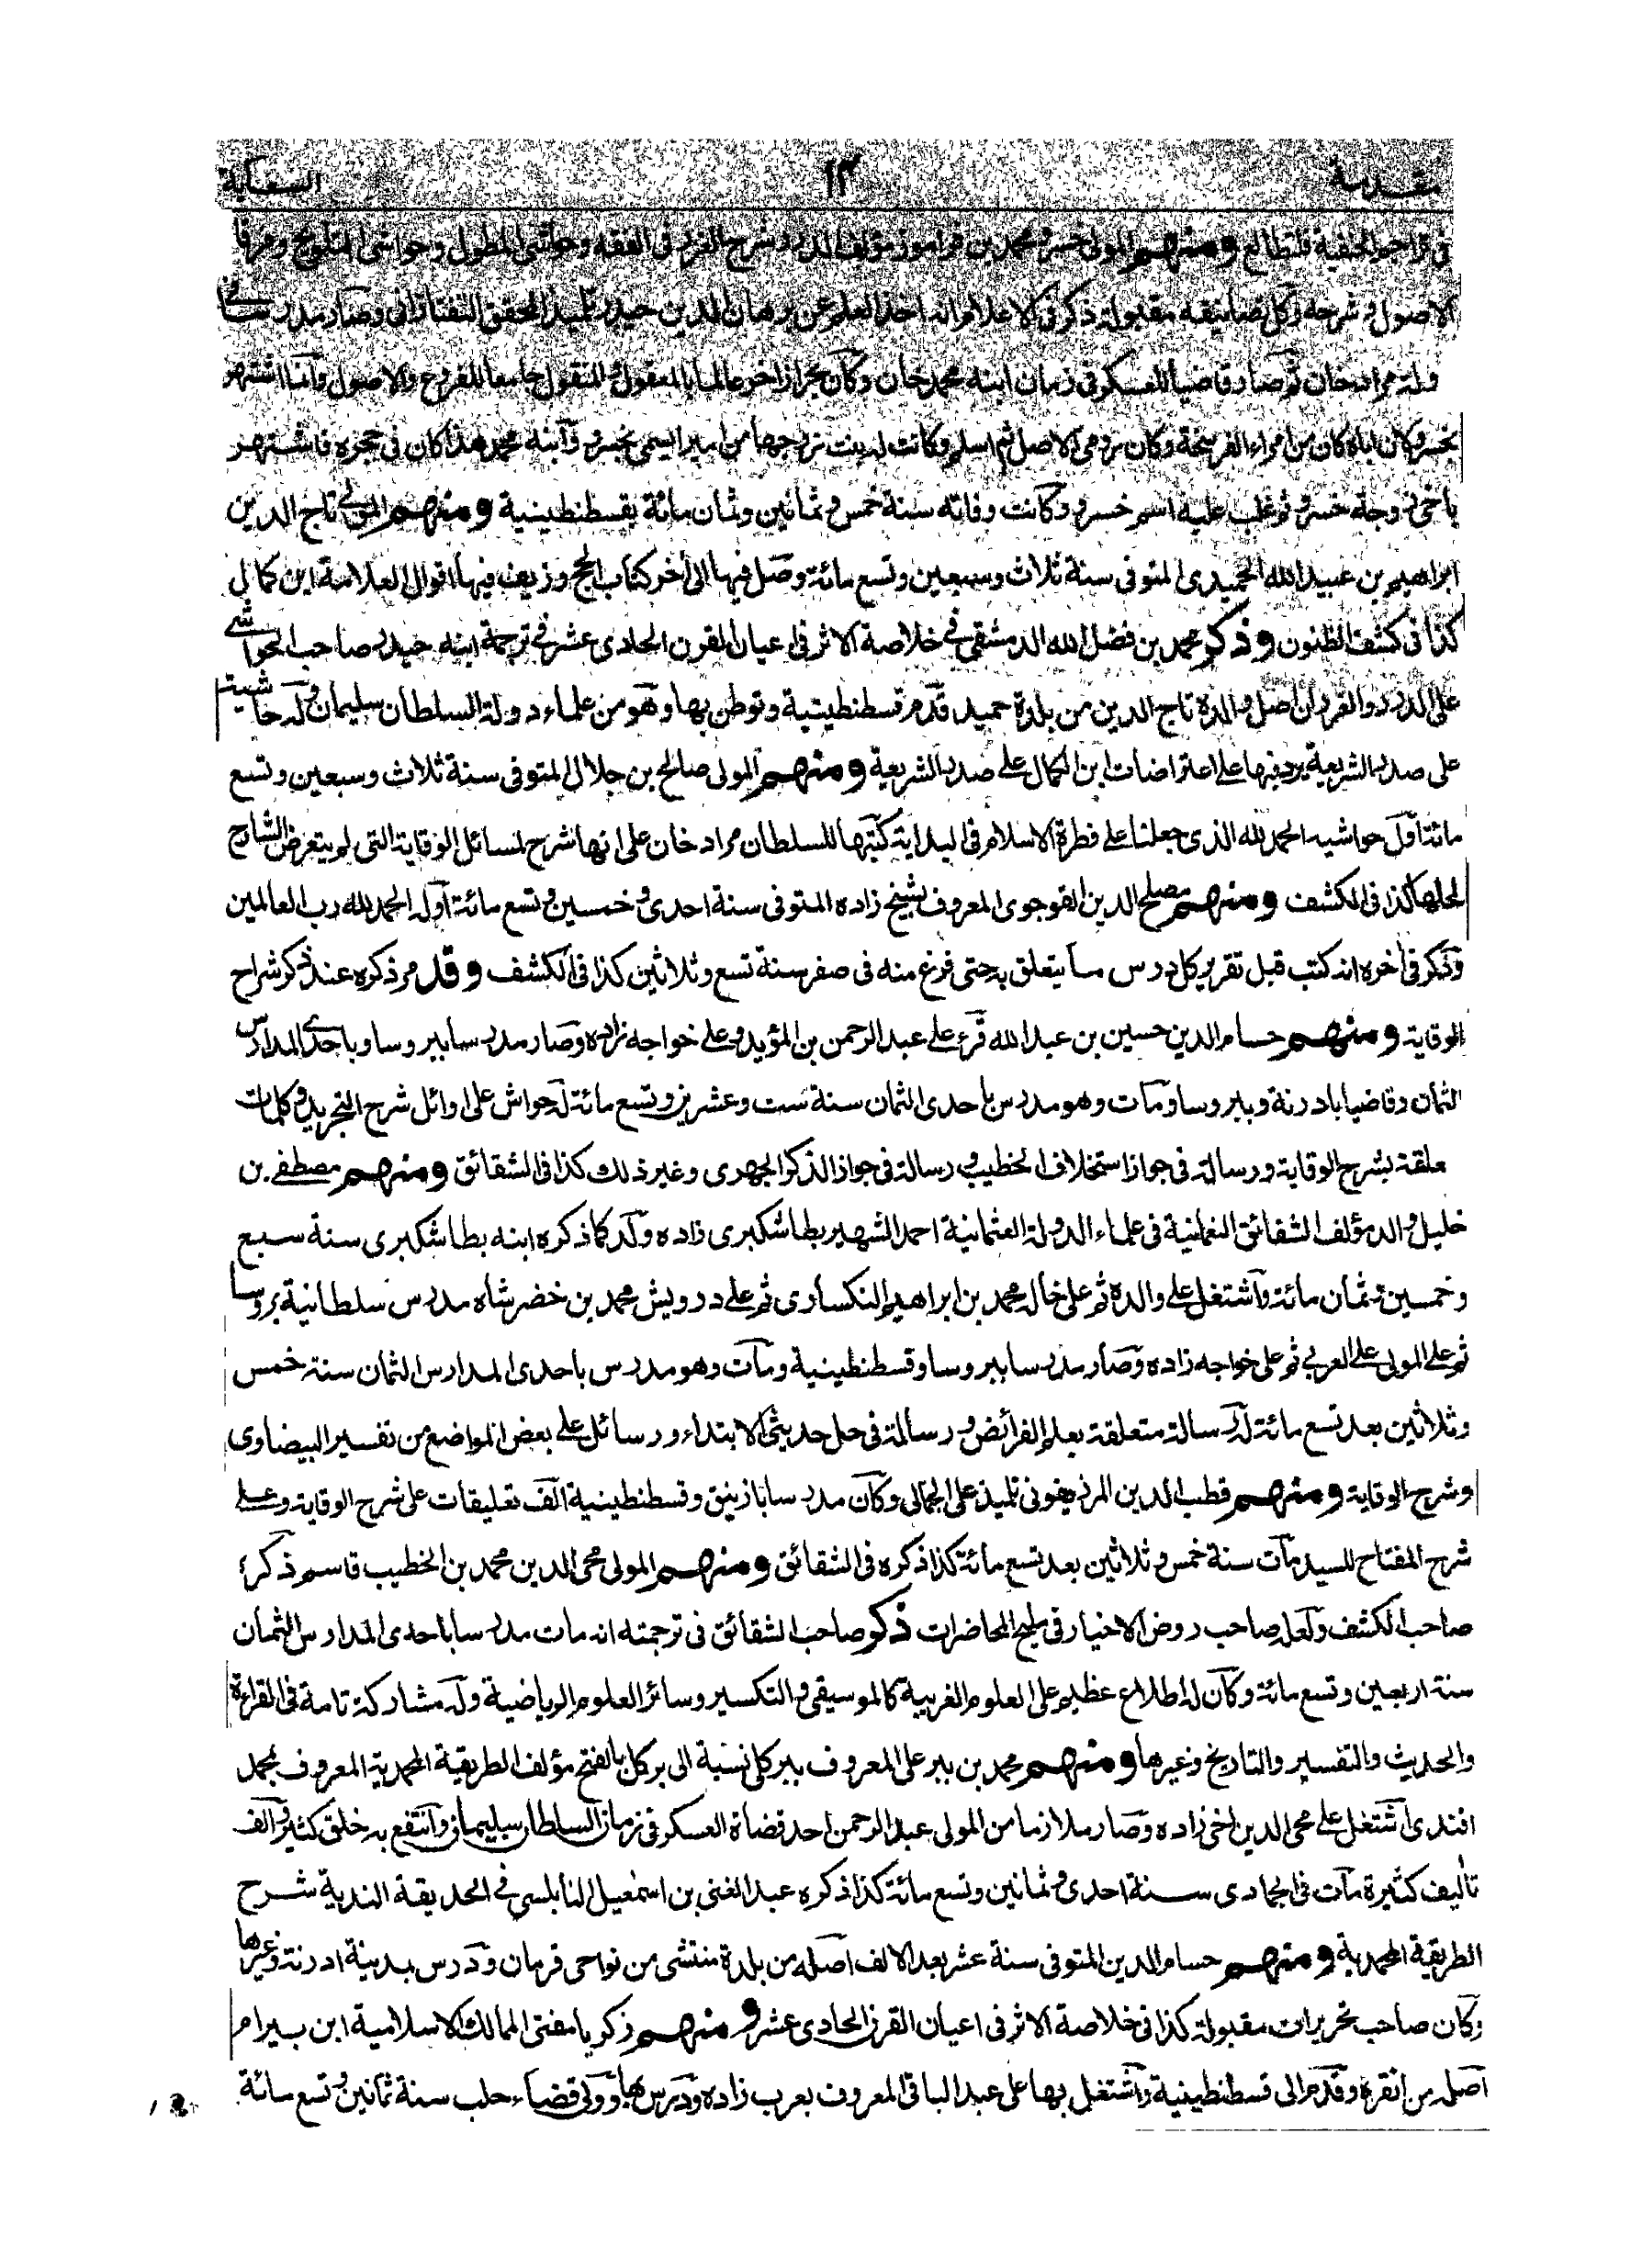 مقدمة ١٣ السعاية
فى تراجم الحنفية فلتطالع ومنهم المولى خسرو محمد بن فراموز مؤلف الدرر شرح الغرر فى الفقه وحواشى المطول وحواشى التلويح ومرقاة
الاصول وشرحه وكل تصانيفه مقبولة ذكر فى الاعلام انه اخذ العلم عن برهان الدين حيدر تلميذ المحقق التفتازانى وصار مدرسا فى
دولة مراد خان ثم صار قاضيا للعسكر فى زمان ابنه محمد خان وكان بحرا زاخرا عالما بالمعقول والمنقول جامعا للفروع والاصول وانما اشتهر
بخسرو لان اباه كان من امراء الفرسخة وكان رومى الاصل ثم اسلم وكانت له بنت زوجها من امير اليسمى بخسرو وابنه محمد هذا كان فى حجره فاشتهر
باخى زوجة خسرو ثم غلب عليه اسم خسرو وكانت وفاته سنة خمس وثمانين وثمان مائة بقسطنطينية ومنهم المولى تاج الدين
ابراهيم بن عبيد الله الحميدى المتوفى سنة ثلاث وسبعين وتسع مائة وصل فيها الى اخر كتاب الحج وزيف فيها اقوال العلامة ابن كمال
كذا فى كشف الظنون وذكر محمد بن فضل الله الدمشقى فى خلاصة الاثر فى اعيان القرن الحادى عشر فى ترجمة ابنه حيدر صاحب الحواشى
على الدرر والغرر ان اصل والده تاج الدين من بلدة حميد قدم قسطنطينية وتوطن بها وهو من علماء دولة السلطان سليمان وله حاشية
على صدر الشريعة يرد فيها على اعتراضات ابن الكمال على صدر الشريعة ومنهم المولى صالح بن جلال المتوفى سنة ثلاث وسبعين وتسع
مائة اول حواشيه الحمد لله الذى جعلنا على فطرة الاسلام فى البداية كتبها للسلطان مراد خان على انها شرح لمسائل الوقاية التى لم يتعرض الشارح
لحلها كذا فى الكشف ومنهم مصلح الدين القوجوى المعروف بشيخ زاده المتوفى سنة احدى وخمسين وتسع مائة اوله الحمد لله رب العالمين
وذكر فى اخره انه كتب قبل تقرير كل درس ما يتعلق به حتى فرغ منه فى صفر سنة تسع وثلاثين كذا فى الكشف وقد مر ذكره عند ذكر شراح
الوقاية ومنهم حسام الدين حسين بن عبد الله قرء على عبد الرحمن بن المؤيد وعلى خواجه زاده وصار مدرسا ببروسا وباحدى المدارس
الثمان وقاضيا بادرنة وببروسا ومات وهو مدرس باحدى الثمان سنة ست وعشرين وتسع مائة له حواش على اوائل شرح التجريد وكلمات
علقة بشرح الوقاية ورسالة فى جواز استخلاف الخطيب ورسالة فى جواز الذكر الجهرى وغير ذلك كذا فى الشقائق ومنهم مصطفى بن
خليل والد مؤلف الشقائق النعمانية فى علماء الدولة العثمانية احمد الشهير بطاشكبرى زاده ولد كما ذكره ابنه بطاشكبرى سنة سبع
وخمسين وثمان مائة واشتغل على والده ثم على خاله محمد بن ابراهيم النكسارى ثم على درويش محمد بن خضر شاه مدرس سلطانية بروسا
ثم على المولى على العربى ثم على خواجه زاده وصار مدرسا ببروسا وقسطنطينية ومات وهو مدرس باحدى المدارس الثمان سنة خمس
وثلاثين بعد تسع مائة له رسالة متعلقة بعلم الفرائض ورسالة فى حل حديثى الابتداء ورسائل على بعض المواضع من تفسير البيضاوى
وشرح الوقاية ومنهم قطب الدين المرزيفونى تلميذ على الجمالى وكان مدرسا بازنيق وقسطنطينية الف تعليقات على شرح الوقاية وعلى
شرح المفتاح للسيد مات سنة خمس وثلاثين بعد تسع مائة كذا ذكره فى الشقائق ومنهم المولى محى الدين محمد بن الخطيب قاسم ذكره
صاحب الكشف ولعله صاحب روض الاخيار فى علم المحاضرات ذكر صاحب الشقائق فى ترجمته انه مات مدرسا باحدى المدارس الثمان
سنة اربعين وتسع مائة وكان له اطلاع عظيم على العلوم الغريبة كالموسيقى والتكسير وسائر العلوم الرياضية وله مشاركة تامة فى القراءة
والحديث والتفسير والتاريخ وغيرها ومنهم محمد بن بير على المعروف ببركلى نسبة الى بركل بالفتح مؤلف الطريقة المحمدية المعروف بمحمد
افندى اشتغل على محى الدين اخى زاده وصار ملازما من المولى عبد الرحمن احد قضاة العسكر فى زمان السلطان سليمان وانتفع به خلق كثير والف
تأليف كثيرة مات فى الجمادى سنة احدى وثمانين وتسع مائة كذا ذكره عبد الغنى بن اسمعيل النابلسى فى الحديقة الندية شرح
الطريقة المحمدية ومنهم حسام الدين المتوفى سنة عشر بعد الالف اصله من بلدة منتشى من نواحى قرمان ودرس بمدينة ادرنة وغيرها
وكان صاحب تحريرات مقبولة كذا فى خلاصة الاثر فى اعيان القرن الحادى عشر ومنهم زكريا مفتى الممالك الاسلامية ابن بيرام
اصله من انقرة وقدم الى قسطنطينية واشتغل بها على عبد الباقى المعروف بعرب زاده ودرس بها وولى قضاء حلب سنة ثمانين وتسع مائة